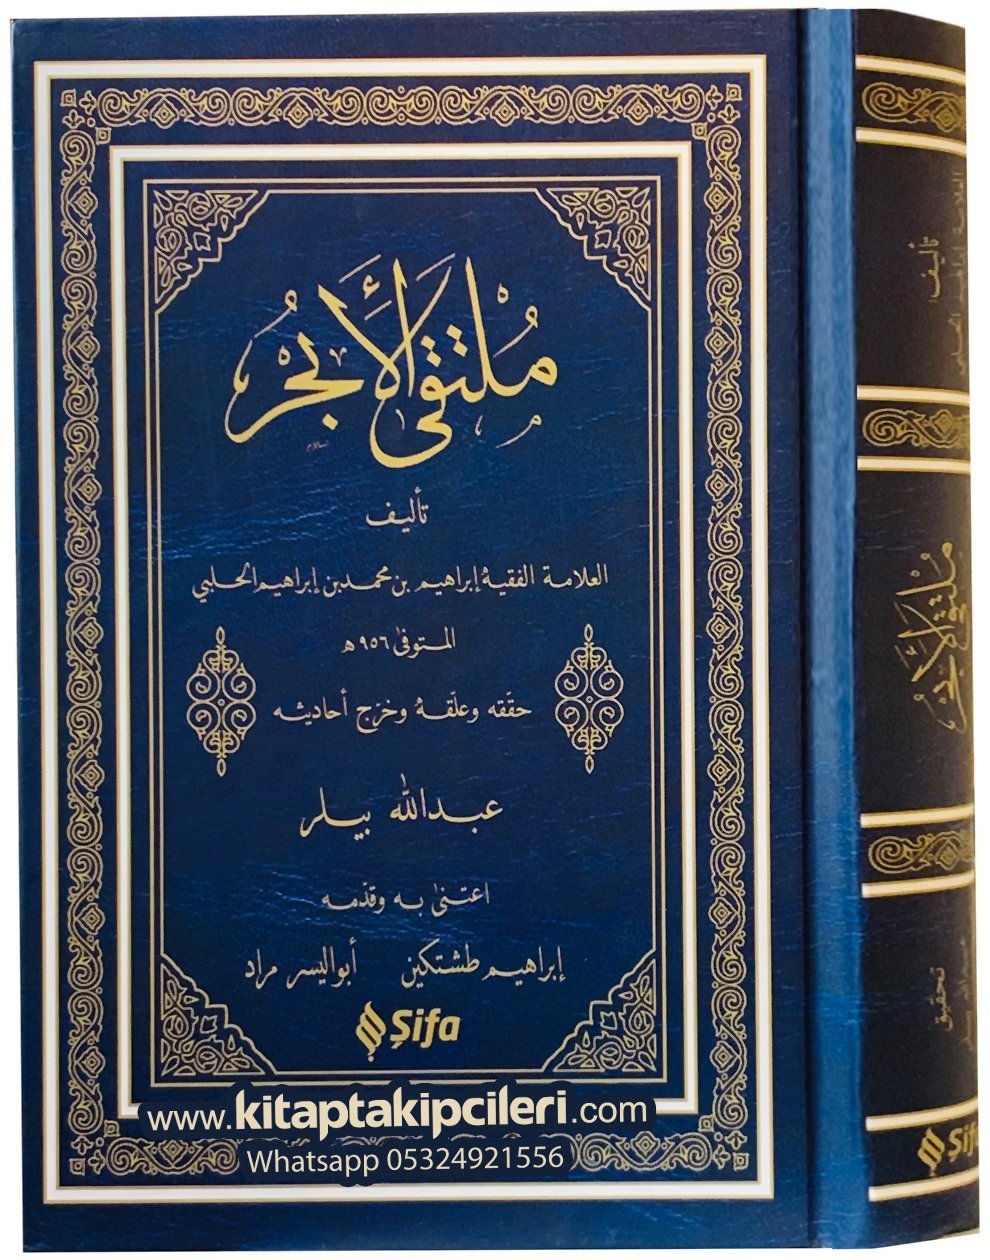 مُلْتَقَى الْأَبْحُرُ
تأليف
العلامة الفقيه إبراهيم بن محمد بن إبراهيم الحلبي
المتوفى ٩٥٦ هـ
حققه وعلّقه وخرّج أحاديثه
عبد الله بيلر
اعتنى به وقدّمه
إبراهيم طشتكين أبو اليسر مراد
Şifa
www.kitaptakipcileri.com
Whatsapp 05324921556
تأليف
العلامة إبراهيم الحلبي
مُلْتَقَى الْأَبْحُرُ
تحقيق
Şifa